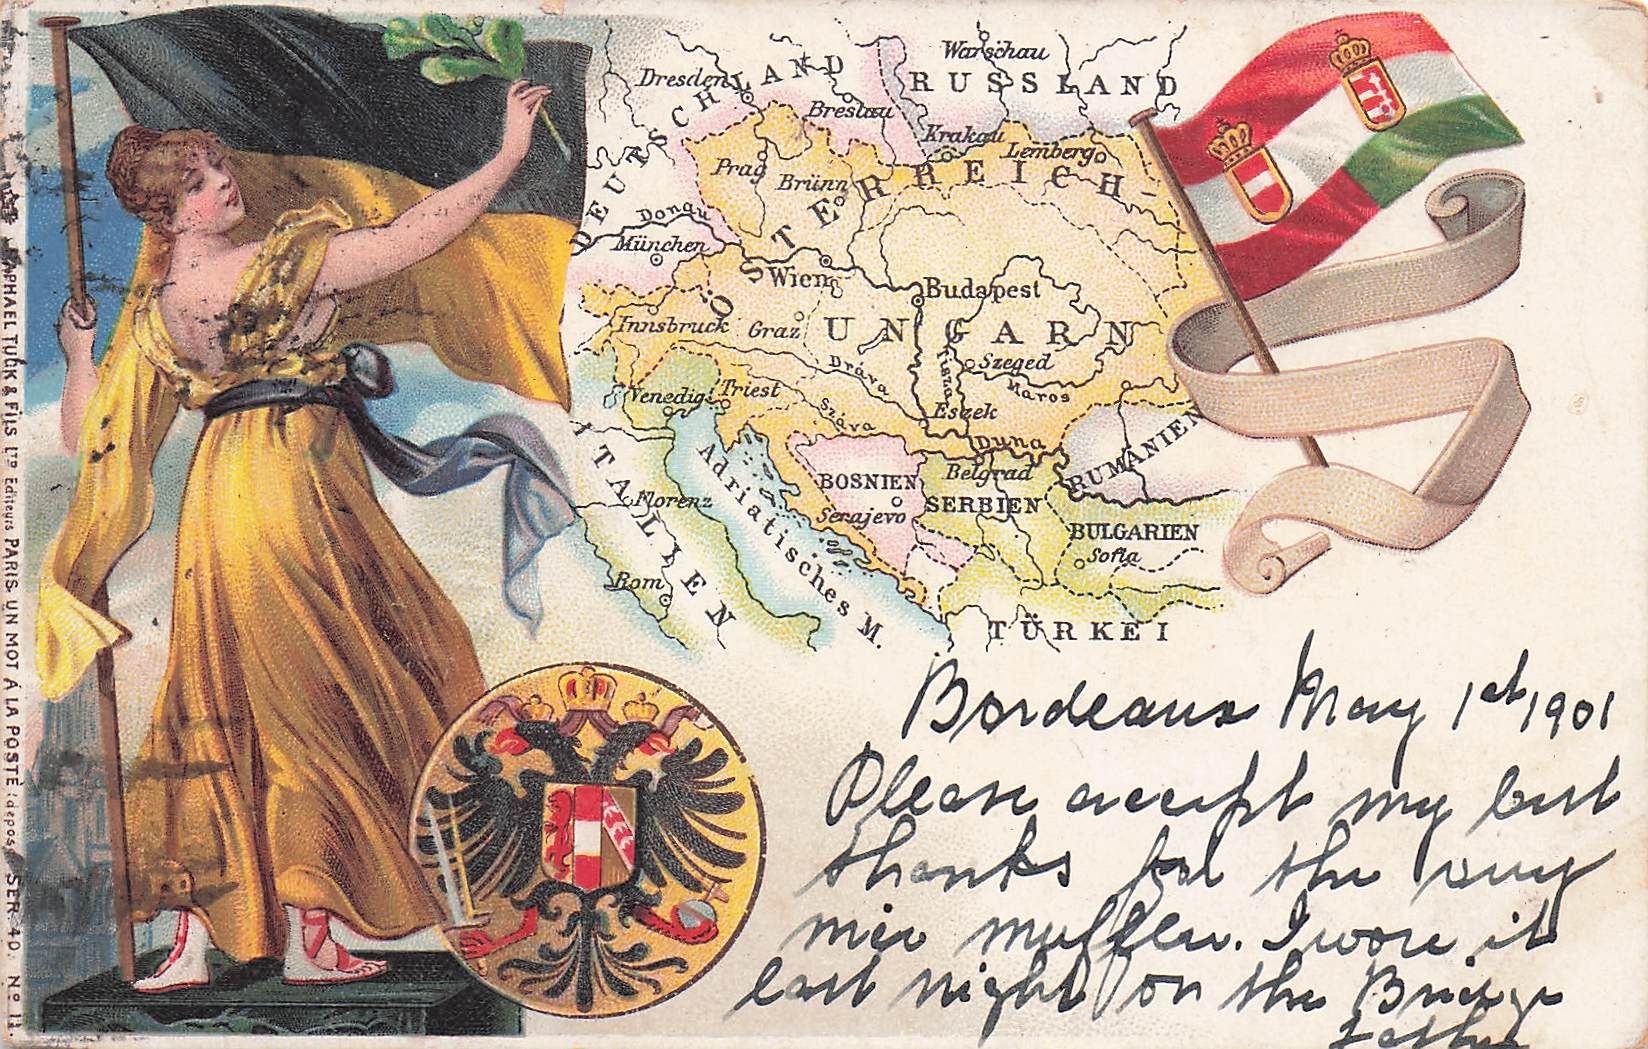 RAPHAEL TUCK & FILS LTD Editeurs PARIS UN MOT A LA POSTE (déposé) SER 40. No 11.
DEUTSCHLAND
Dresden
Breslau
Warschau
RUSSLAND
Krakau
Lemberg
Prag
Brünn
ÖSTERREICH-
UNGARN
Donau
München
Wien
Budapest
Innsbruck
Graz
Dráva
Tisza
Szeged
Maros
Venedig
Triest
Száva
Eszek
Duna
ITALIEN
Florenz
Rom
Adriatisches M.
BOSNIEN
Serajevo
Belgrad
SERBIEN
RUMÄNIEN
BULGARIEN
Sofia
TÜRKEI
Bordeaux May 1st 1901
Please accept my best
thanks for the very
nice muffler. I wore it
last night on the Bridge
Father